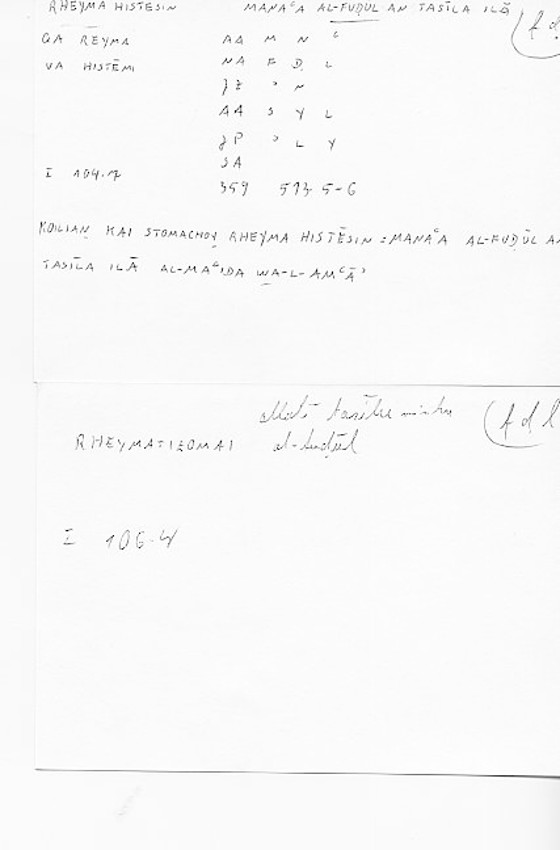 RHEYMA HISTESIN MANAᶜA AL-FUḌUL AN TASĪLA ILĀ
QA REYMA AA M N ᶜ
VA HISTĒMI NA F Ḍ L
JZ ʾ N
AA S Y L
JP ʾ L Y
SA
I 104.7
359 573 5-6
KOILIAN KAI STOMACHOY RHEYMA HISTĒSIN : MANAᶜA AL-FUḌŪL AN
TASĪLA ILĀ AL-MAᶜIDA WA-L-AMᶜĀʾ
allatī tasīlu minhu (f ḍ l
RHEYMATIZOMAI al-fuḍūl
I 106.4